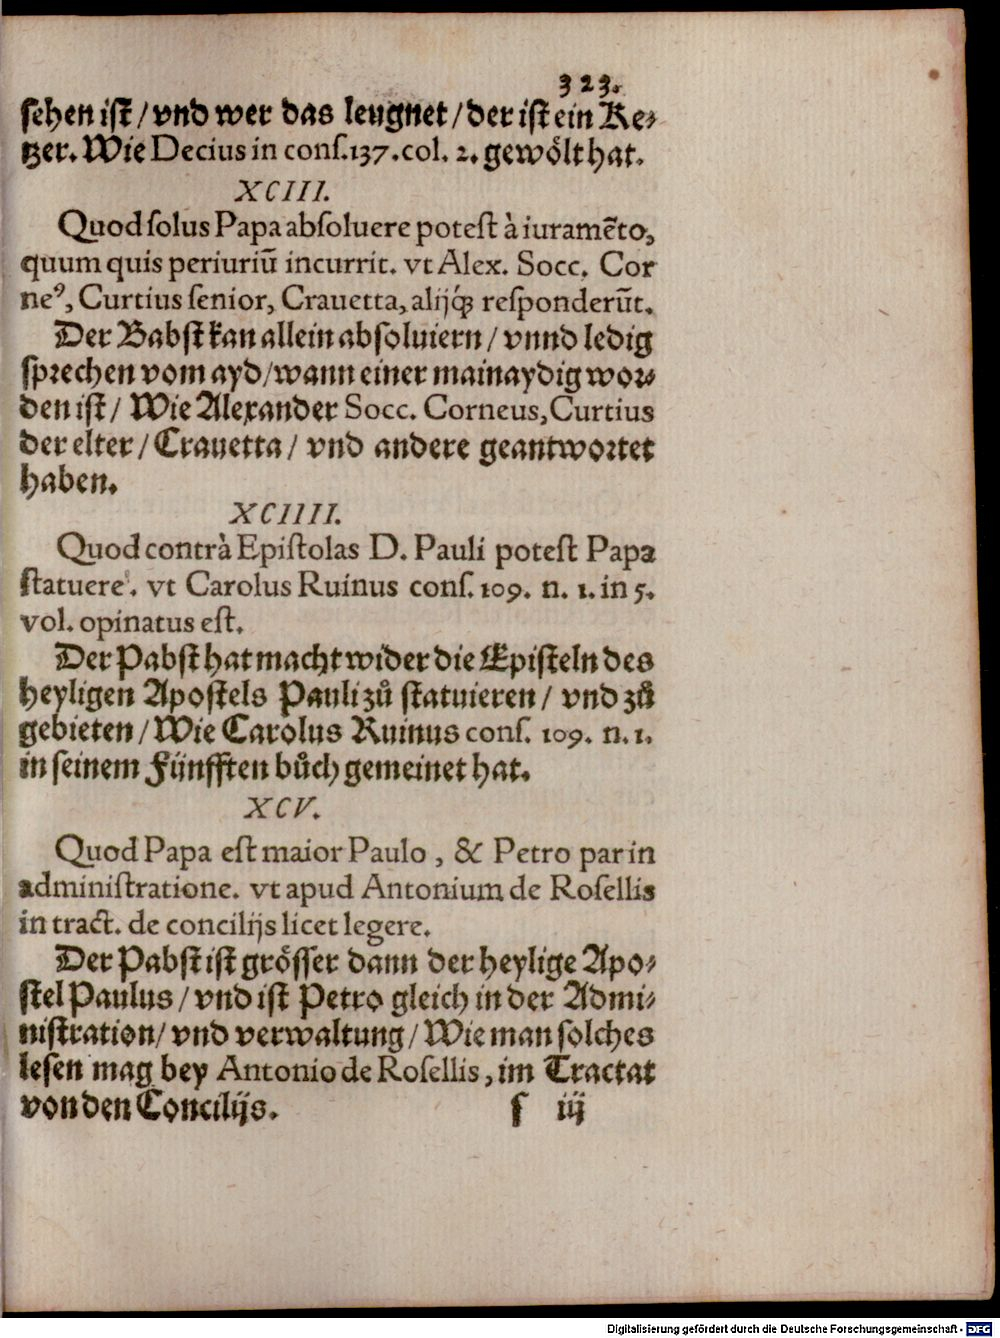 323.
sehen ist / vnd wer das leugnet / der ist ein Ke⸗
tzer. Wie Decius in cons. 137. col. 2. gewoͤlt hat.
XCIII.
Quod solus Papa absoluere potest à iuramẽto,
quum quis periuriũ incurrit. vt Alex. Socc. Cor
neꝰ, Curtius senior, Crauetta, alijq́ꝫ responderũt.
Der Babst kan allein absoluiern / vnnd ledig
sprechen vom ayd / wann einer mainaydig wor⸗
den ist / Wie Alexander Socc. Corneus, Curtius
der elter / Crauetta / vnd andere geantwortet
haben.
XCIIII.
Quod contrà Epistolas D. Pauli potest Papa
statuere. vt Carolus Ruinus cons. 109. n. 1. in 5.
vol. opinatus est.
Der Pabst hat macht wider die Episteln des
heyligen Apostels Pauli zů statuieren / vnd zů
gebieten / Wie Carolus Ruinus cons. 109. n. 1.
in seinem Fünfften bůch gemeinet hat.
XCV.
Quod Papa est maior Paulo, & Petro par in
administratione. vt apud Antonium de Rosellis
in tract. de concilijs licet legere.
Der Pabst ist groͤsser dann der heylige Apo⸗
stel Paulus / vnd ist Petro gleich in der Admi⸗
nistration / vnd verwaltung / Wie man solches
lesen mag bey Antonio de Rosellis, im Tractat
von den Concilijs.
s iij
Digitalisierung gefördert durch die Deutsche Forschungsgemeinschaft - DFG